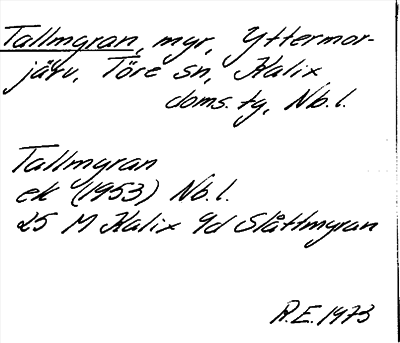 Tallmyran, myr, Yttermor-
järv, Töre sn, Kalix
doms. tg, Nb.l.
Tallmyran
ek (1953) Nb.l.
25 M Kalix 9d Slåttmyran
R.E. 1973